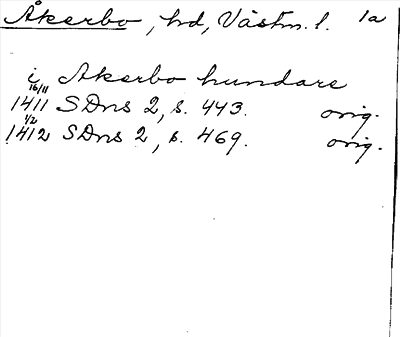 Åkerbo, hd, Västm. l. 1a
i Akerbo hundare
16/11
1411 SDns 2, s. 443. orig.
1/2
1412 SDns 2, s. 469. orig.